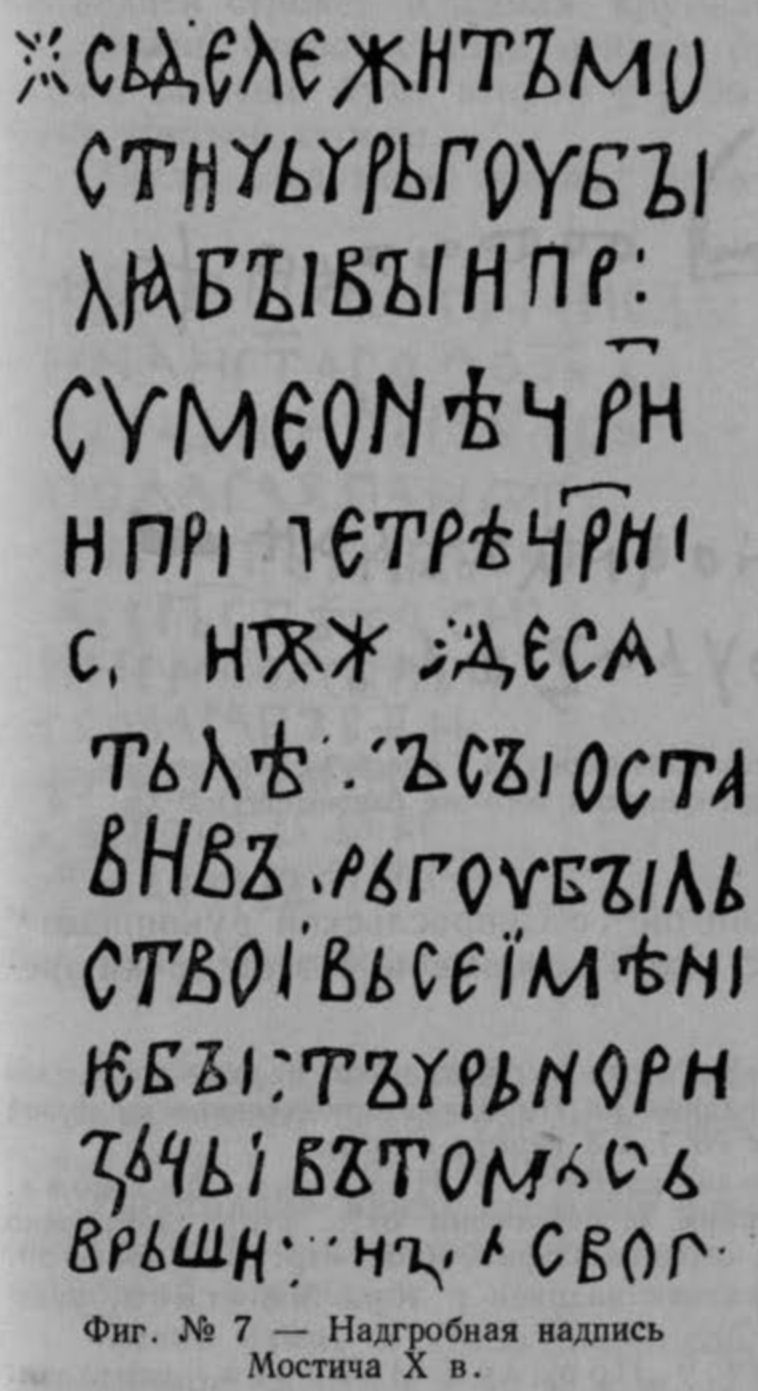 ※ СЬДЄЛЄЖИТЪМО
СТИЧЬЧРЬГОУБЪІ
ЛꙖБЪІВЪІИПР:
СУМЄОНѢЧР҃И
ИПРІ ПЄТРѢЧР҃ИІ
С. ИѪЖ ДЄСѦ
ТЬЛѢ Ъ СЪІОСТА
ВИВЪ РЬГОУБЪІЛЬ
СТВОІВЬСЄЇМѢНІ
ѤБЪІ:ТЪЧРЬНОРИ
ꙀЬЧЬІ ВЪТОМЬСЬ
ВРЬШИ: ИꙀ СВОГ
Фиг. № 7 — Надгробная надпись
Мостича X в.